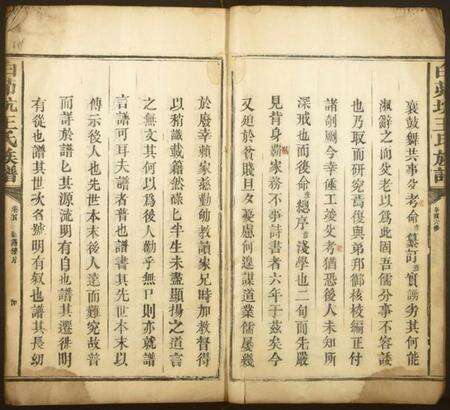 襄鼓舞共事乎考命纂訂實謗劣其何能
淑辭之而父老以為此固吾儒分事不容諉
也乃取而研究焉復與弟邦御核校編正付
諸剞劂今幸竣工竣父考猶恐後人未知所
深戒也而後命總序淺學也二旬而先嚴
見背身羈家務不事詩書者六年于茲矣今
又迫於貧賤旦夕憂慮何遑謀道業儒屢幾
於廢幸賴家慈勤帥教讀家兄時加教督得
以稍識載籍然碌碌半生未盡顯揚之道言
之無文其何以為後人勸乎無已則亦就譜
言譜可耳夫譜者普也譜書其先世本末以
傳示後人也先世本末後人遠而難究故普
而詳於譜上其源流明有自也譜其遷徙明
有從也譜其世次名號明有敘也譜其長幼
白茆坑王氏族譜
卷首